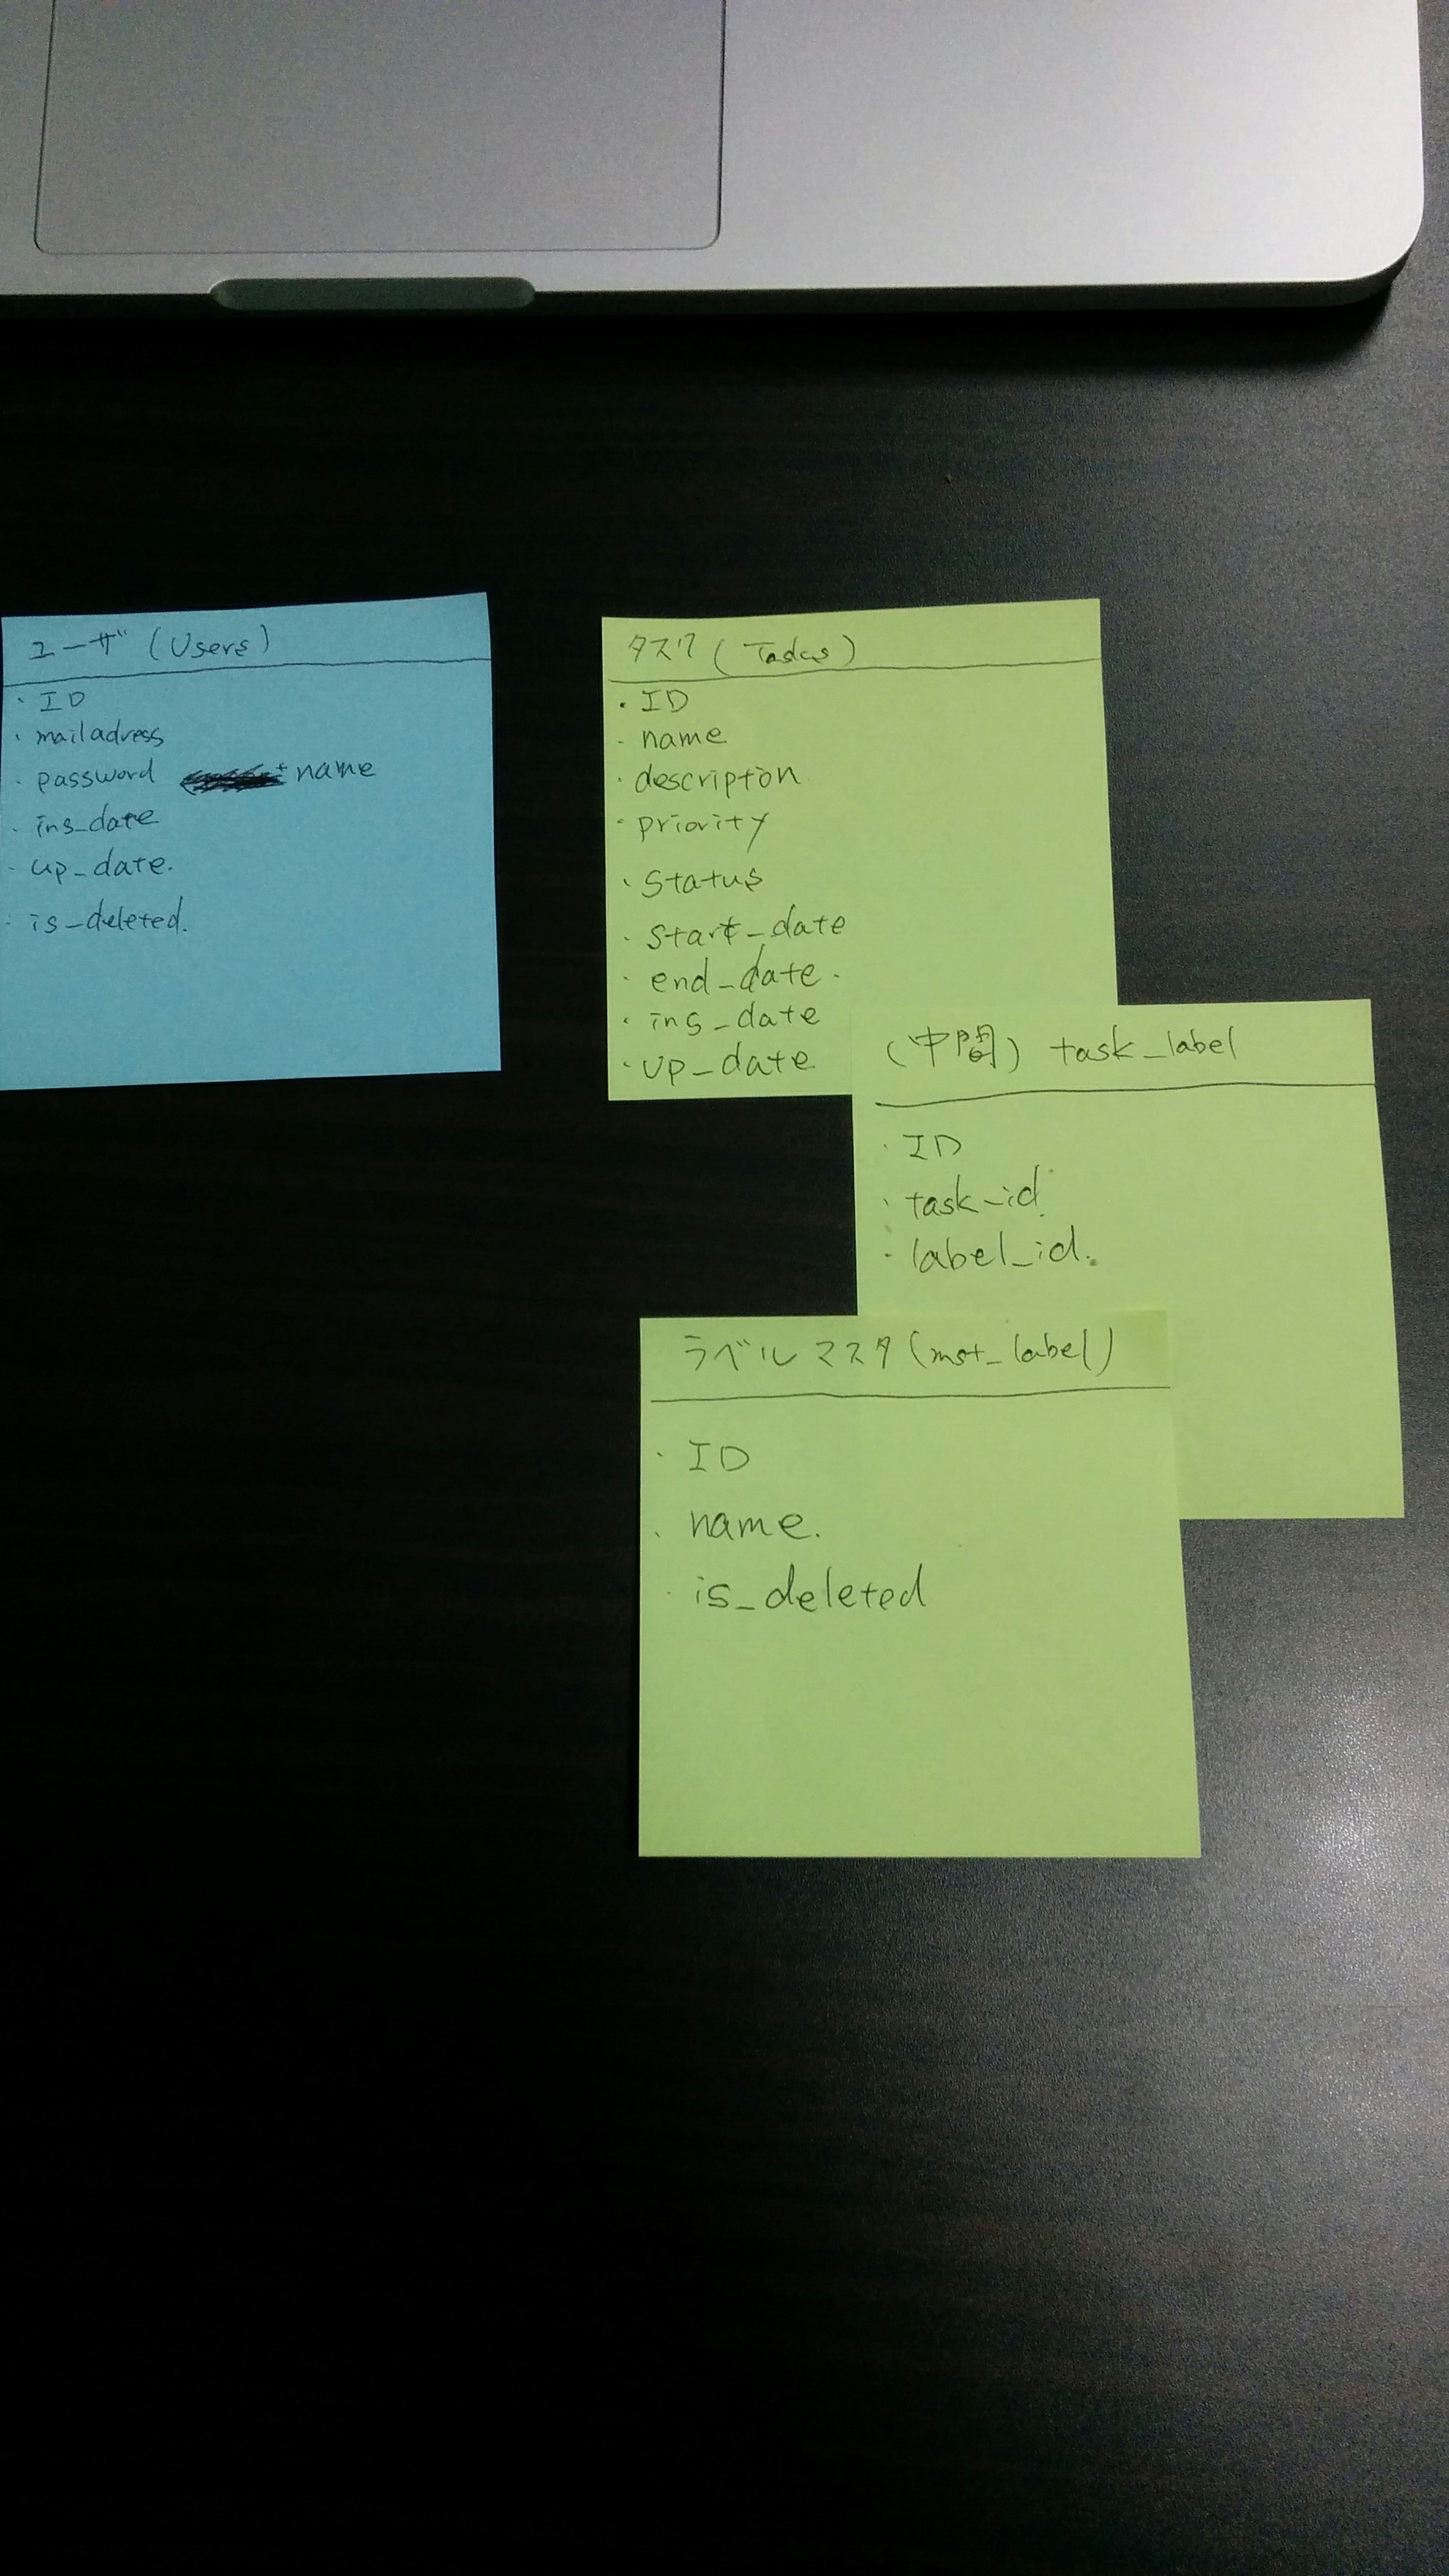 ユーザ (Users)
・ID
・mailadress
・password ・name
・ins_date
・up_date.
・is_deleted.
タスク (Tasks)
・ID
・name
・descripton
・priority
・status
・start_date
・end_date.
・ins_date
・up_date
(中間) task_label
・ID
・task_id.
・label_id.
ラベルマスタ (mst_label)
・ID
・name.
・is_deleted